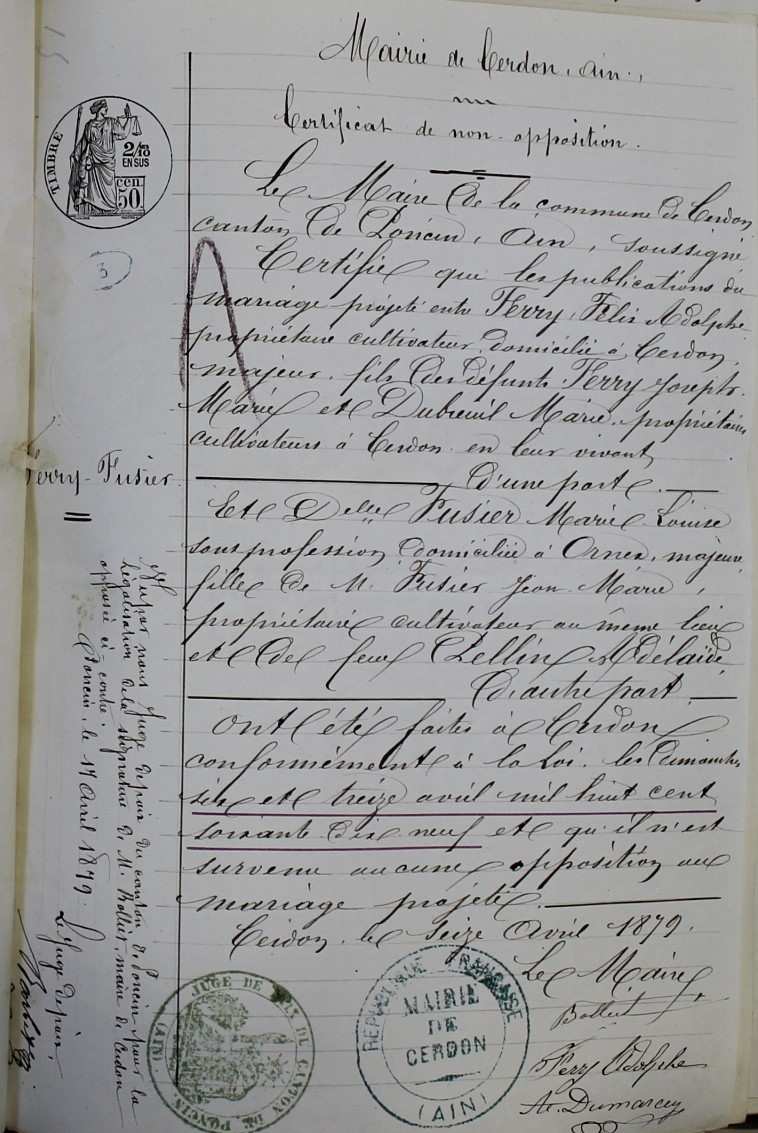 Mairie de Cerdon, Ain.
Certificat de non-opposition.
Le Maire de la commune de Cerdon
canton de Poncin, Ain, soussigné
Certifie que les publications du
mariage projeté entre Ferry, Félix Adolphe
propriétaire cultivateur, domicilié à Cerdon,
majeur, fils des défunts Ferry Joseph-
Marie et Dubreuil Marie, propriétaires
cultivateurs à Cerdon en leur vivant
d'une part.
Et Delle Fusier Marie Louise
sans profession, domiciliée à Ornex, majeure,
fille de M. Fusier Jean-Marie,
propriétaire cultivateur au même lieu
et de feue Pellin Adélaïde,
D'autre part,
ont été faites à Cerdon
conformément à la Loi, les dimanches
six et treize avril mil huit cent
soixante dix neuf et qu'il n'est
survenu aucune opposition au
mariage projeté.
Cerdon, le seize Avril 1879.
Le Maire
Bollet
Ferry Adolphe
TIMBRE
2/10
EN SUS
cen.
50
3
Ferry-Fusier
Vu par nous Juge de paix du canton de Poncin pour la
légalisation de la signature de M. Bollet, maire de Cerdon
apposée ci-contre.
Poncin, le 17 Avril 1879.
Le Juge de paix,
JUGE DE PAIX DU CANTON DE PONCIN (AIN)
RÉPUBLIQUE FRANÇAISE
MAIRIE
DE
CERDON
(AIN)